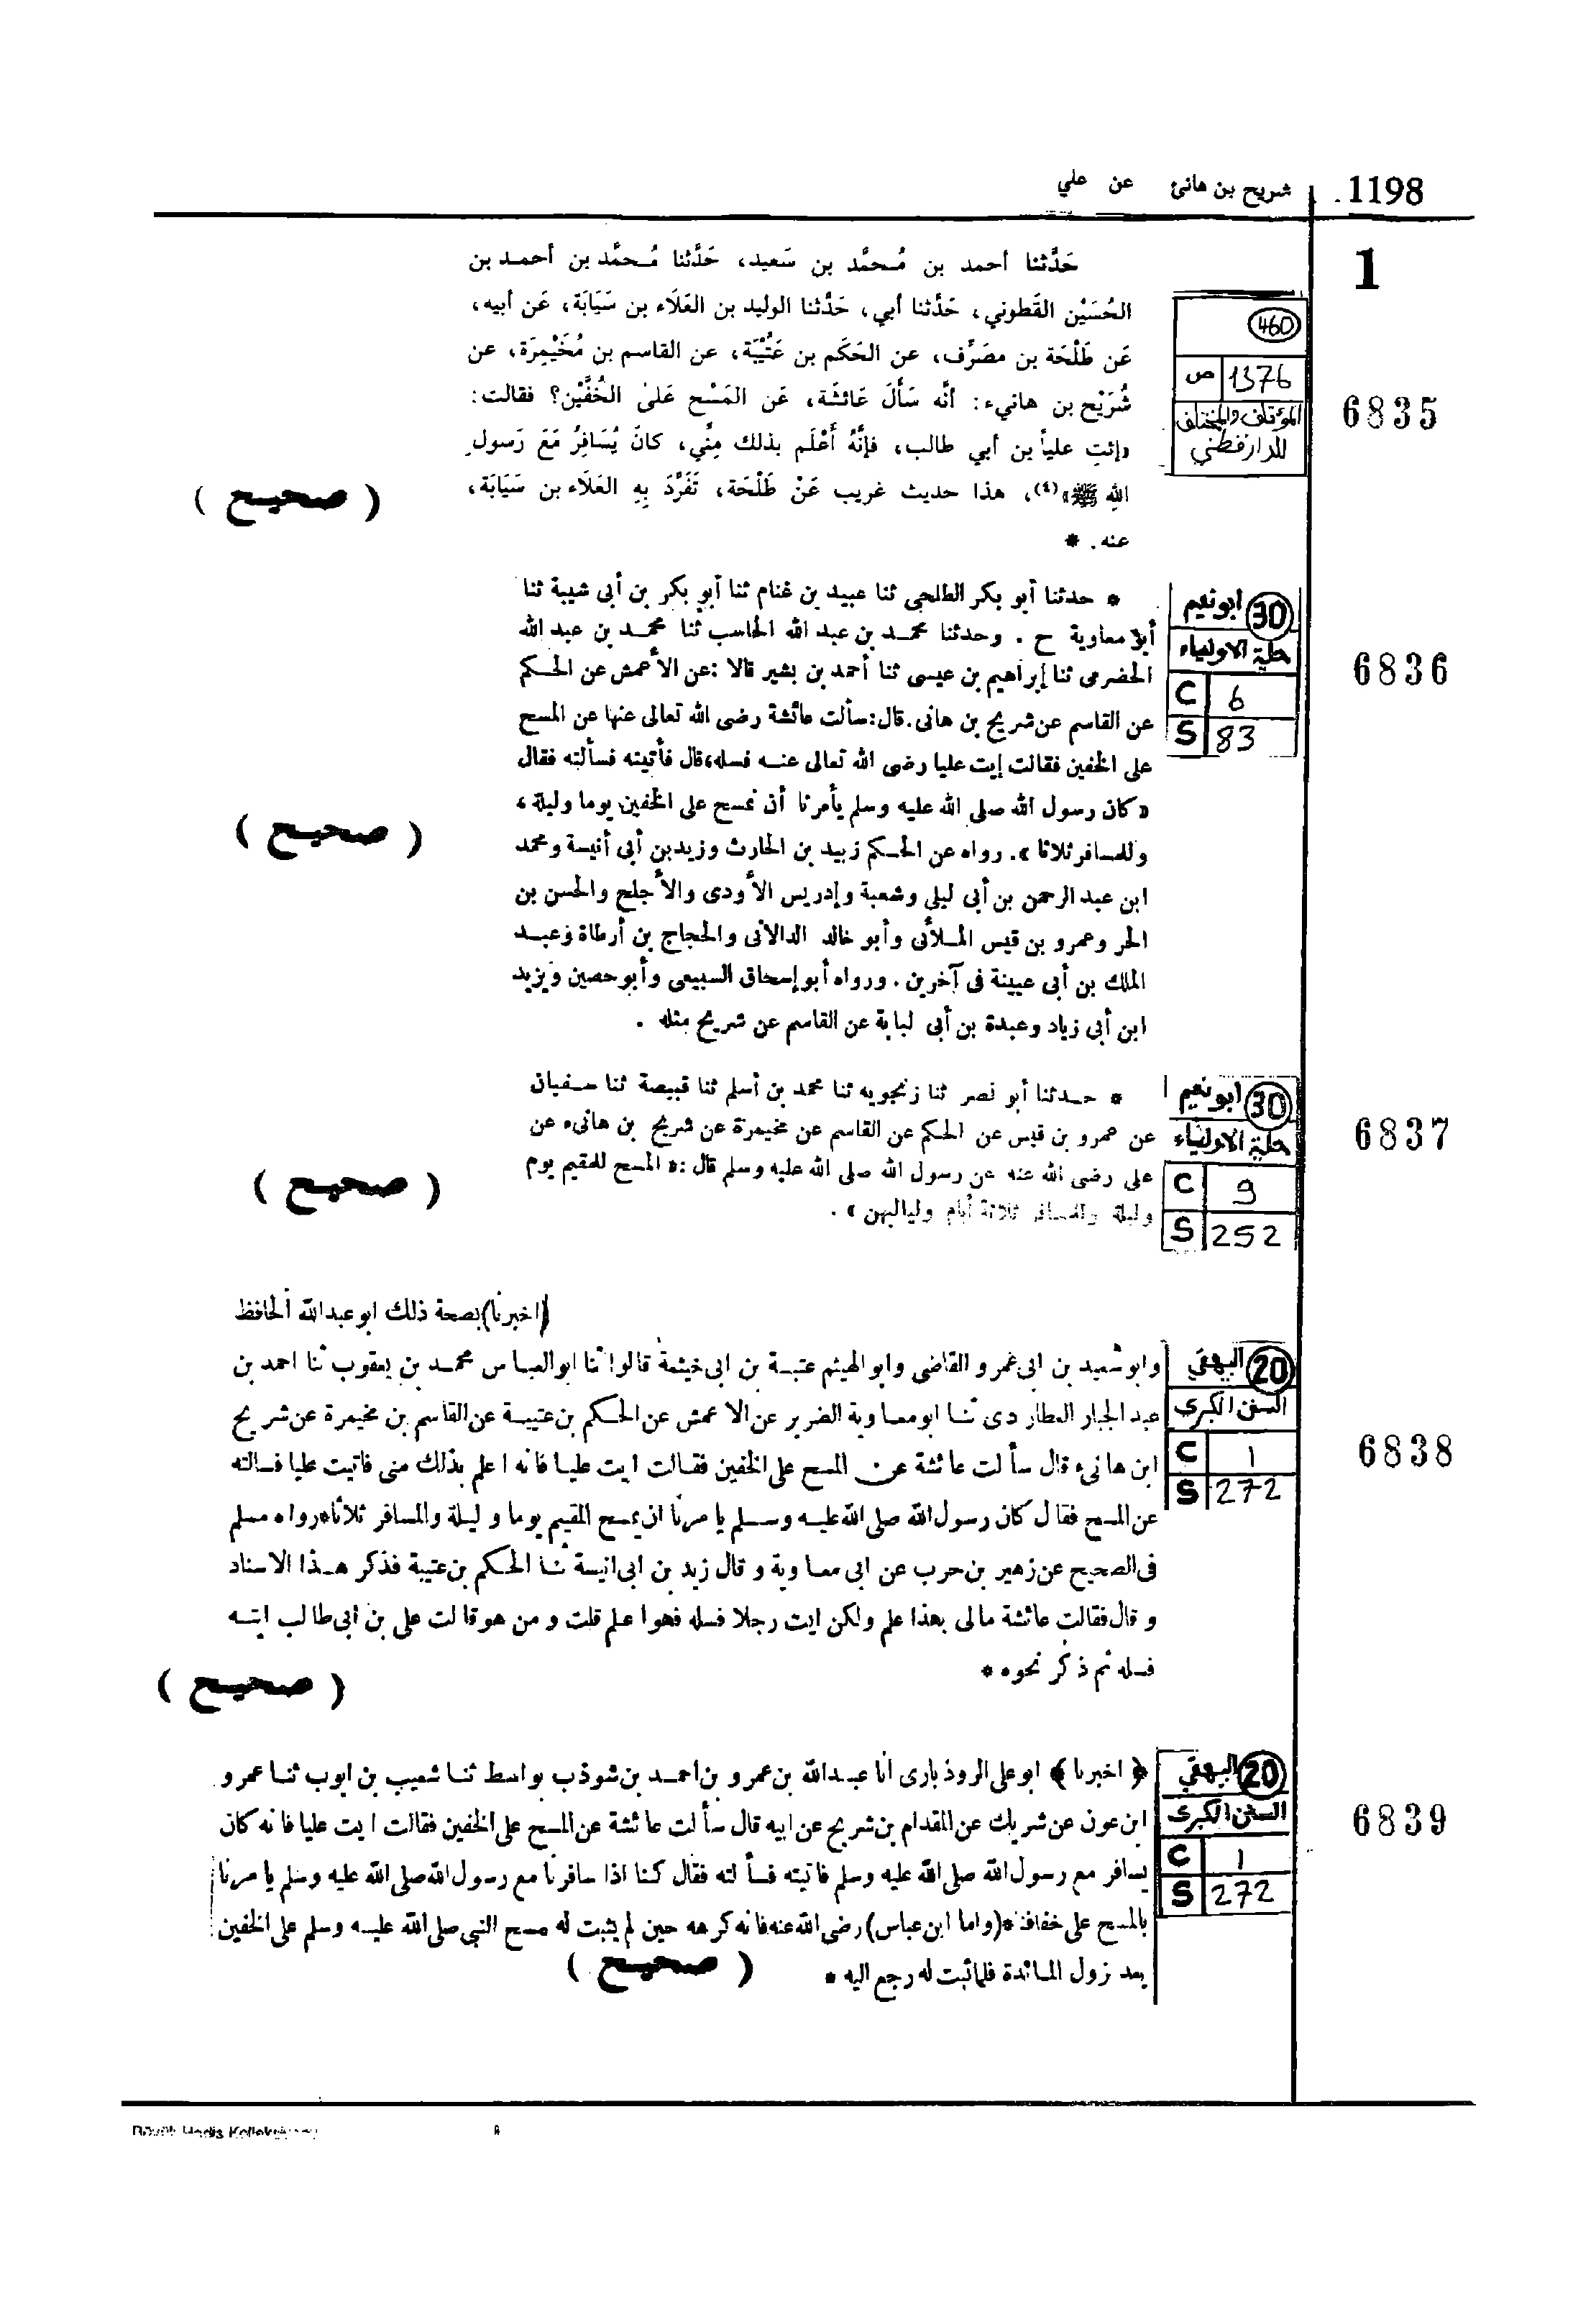 1198 شريح بن هانئ عن علي
1
حَدَّثنا أحمد بن مُحمَّد بن سَعيد، حَدَّثنا مُحمَّد بن أحمد بن
الحُسَيْن القَطوني، حَدَّثنا أبي، حَدَّثنا الوليد بن العَلَاء بن سَيَابَة، عَن أبيه،
عَن طَلْحَة بن مصَرِّف، عن الحَكَم بن عَتُيْبَة، عن القاسم بن مُخَيْمِرَة، عن
شُرَيْح بن هانيء: أنَّه سَأَلَ عَائشَة، عَن المَسْح عَلىٰ الخُفَّيْن؟ فقالت:
«إئتِ علياً بن أبي طالب، فإنَّهُ أَعْلَم بذلك مِنِّي، كانَ يُسَافِرُ مَعَ رَسولِ
اللهِ ﷺ»(٤)، هذا حديث غريب عَنْ طَلْحَة، تَفَرَّدَ بِهِ العَلَاء بن سَيَابَة،
عنه. *
( صحيح )
460
1376 ص
المؤتلف والمختلف
للدارقطني
6835
* حدثنا أبو بكر الطلحى ثنا عبيد بن غنام ثنا أبو بكر بن أبى شيبة ثنا
أبو معاوية ح . وحدثنا محمد بن عبد الله الحاسب ثنا محمد بن عبد الله
الحضرمى ثنا إبراهيم بن عيسى ثنا أحمد بن بشير قالا :عن الأعمش عن الحكم
عن القاسم عن شريح بن هانى.قال:سألت عائشة رضى الله تعالى عنها عن المسح
على الخفين فقالت إيت عليا رضى الله تعالى عنه فسله،قال فأتيته فسألته فقال
«كان رسول الله صلى الله عليه وسلم يأمرنا أن نمسح على الخفين يوما وليلة ،
وللمسافر ثلاثا». رواه عن الحكم زبيد بن الحارث وزيد بن أبى أنيسة ومحمد
ابن عبد الرحمن بن أبى ليلى وشعبة وإدريس الأودى والأجلح والحسن بن
الحر وعمرو بن قيس الملائى وأبو خالد الدالانى والحجاج بن أرطاة وعبد
الملك بن أبى عيينة فى آخرين . ورواه أبو إسحاق السبيعى وأبو حصين ويزيد
ابن أبى زياد وعبدة بن أبى لبابة عن القاسم عن شريح مثله .
( صحيح )
30 ابونعيم
حلية الاولياء
C 6
S 83
6836
* حدثنا أبو نصر ثنا زنجويه ثنا محمد بن أسلم ثنا قبيصة ثنا سفيان
عن عمرو بن قيس عن الحكم عن القاسم عن مخيمرة عن شريح بن هانىء عن
على رضى الله عنه عن رسول الله صلى الله عليه وسلم قال :« المسح للمقيم يوم
وليلة وللمسافر ثلاثة أيام ولياليهن » .
( صحيح )
30 ابونعيم
حلية الاولياء
C 9
S 252
6837
(اخبرنا)بصحة ذلك ابو عبدالله الحافظ
وابو سعيد بن ابى عمرو القاضى وابو الهيثم عتبة بن ابى خيثمة قالوا ثنا ابو العباس محمد بن يعقوب ثنا احمد بن
عبد الجبار العطاردى ثنا ابو معاوية الضرير عن الاعمش عن الحكم بن عتيبة عن القاسم بن مخيمرة عن شريح
ابن هانىء قال سألت عائشة عن المسح على الخفين فقالت ايت عليا فانه اعلم بذلك منى فاتيت عليا فسألته
عن المسح فقال كان رسول الله صلى الله عليه وسلم يامرنا ان يمسح المقيم يوما وليلة والمسافر ثلاثا*رواه مسلم
فى الصحيح عن زهير بن حرب عن ابى معاوية وقال زيد بن ابى انيسة ثنا الحكم بن عتيبة فذكر هذا الاسناد
وقال فقالت عائشة مالى بهذا علم ولكن ايت رجلا فسله فهو اعلم قلت ومن هو قالت على بن ابى طالب ايته
فسله ثم ذكر نحوه *
( صحيح )
20 البيهقي
السنن الكبرى
C ١
S 272
6838
﴿ اخبرنا ﴾ ابو على الروذبارى انا عبدالله بن عمرو بن احمد بن شوذب بواسط ثنا شعيب بن ايوب ثنا عمرو
ابن عون عن شريك عن المقدام بن شريح عن ابيه قال سألت عائشة عن المسح على الخفين فقالت ايت عليا فانه كان
يسافر مع رسول الله صلى الله عليه وسلم فاتيته فسألته فقال كنا اذا سافرنا مع رسول الله صلى الله عليه وسلم يامرنا
بالمسح على خفافنا*(واما ابن عباس)رضى الله عنه فانه كرهه حين لم يثبت له مسح النبى صلى الله عليه وسلم على الخفين
بعد نزول المائدة فلما ثبت له رجع اليه *
( صحيح )
20 البيهقي
السنن الكبرى
C ١
S 272
6839